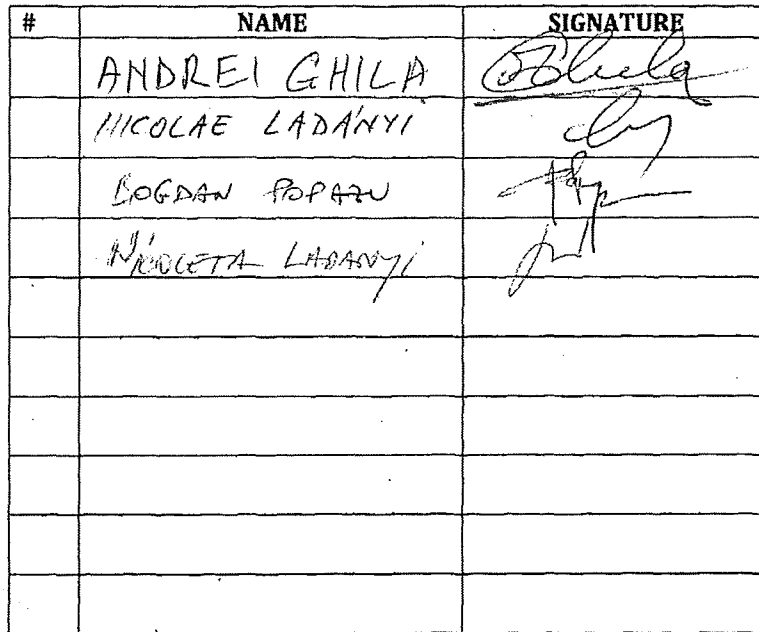 # NAME SIGNATURE
ANDREI GHILA
NICOLAE LADÁNYI
BOGDAN POPAZU
NICOLETA LADANYI